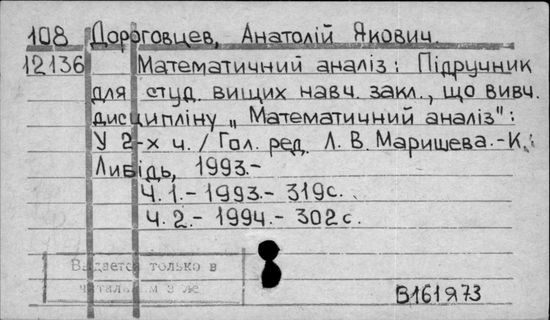 108 Дороговцев, Анатолій Якович.
12136 Математичний аналіз: Підручник
для студ. вищих навч. закл., що вивч.
дисципліну „Математичний аналіз":
У 2-х ч. / Гол. ред. Л. В. Маришева.-К.:
Либідь, 1993.-
Ч. 1.- 1993.- 319с.
Ч. 2.- 1994.- 302 с.
Выдается только в
В161Я73